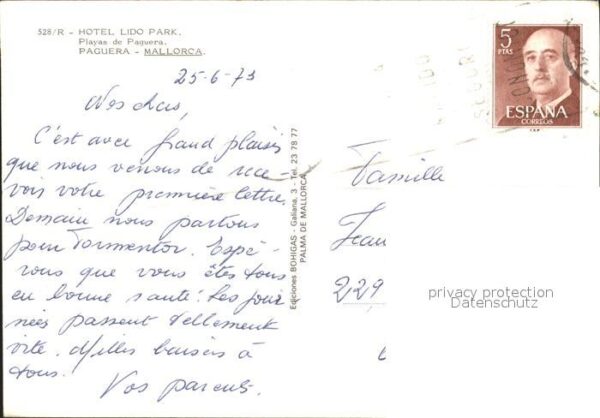 528/R - HOTEL LIDO PARK.
Playas de Paguera.
PAGUERA - MALLORCA.
25-6-73
Nos chers,
C'est avec grand plaisir
que nous venons de rece
voir votre première lettre.
Demain nous partons
pour Formentor. Espé-
rons que vous êtes tous
en bonne santé. Les jour
nées passent tellement
vite. Milles baisers à
tous.
Vos parents.
Ediciones BOHIGAS - Galiana, 3 - Tel. 23 78 77
PALMA DE MALLORCA
5
PTAS
ESPAÑA
CORREOS
Famille
Jean
229
privacy protection
Datenschutz